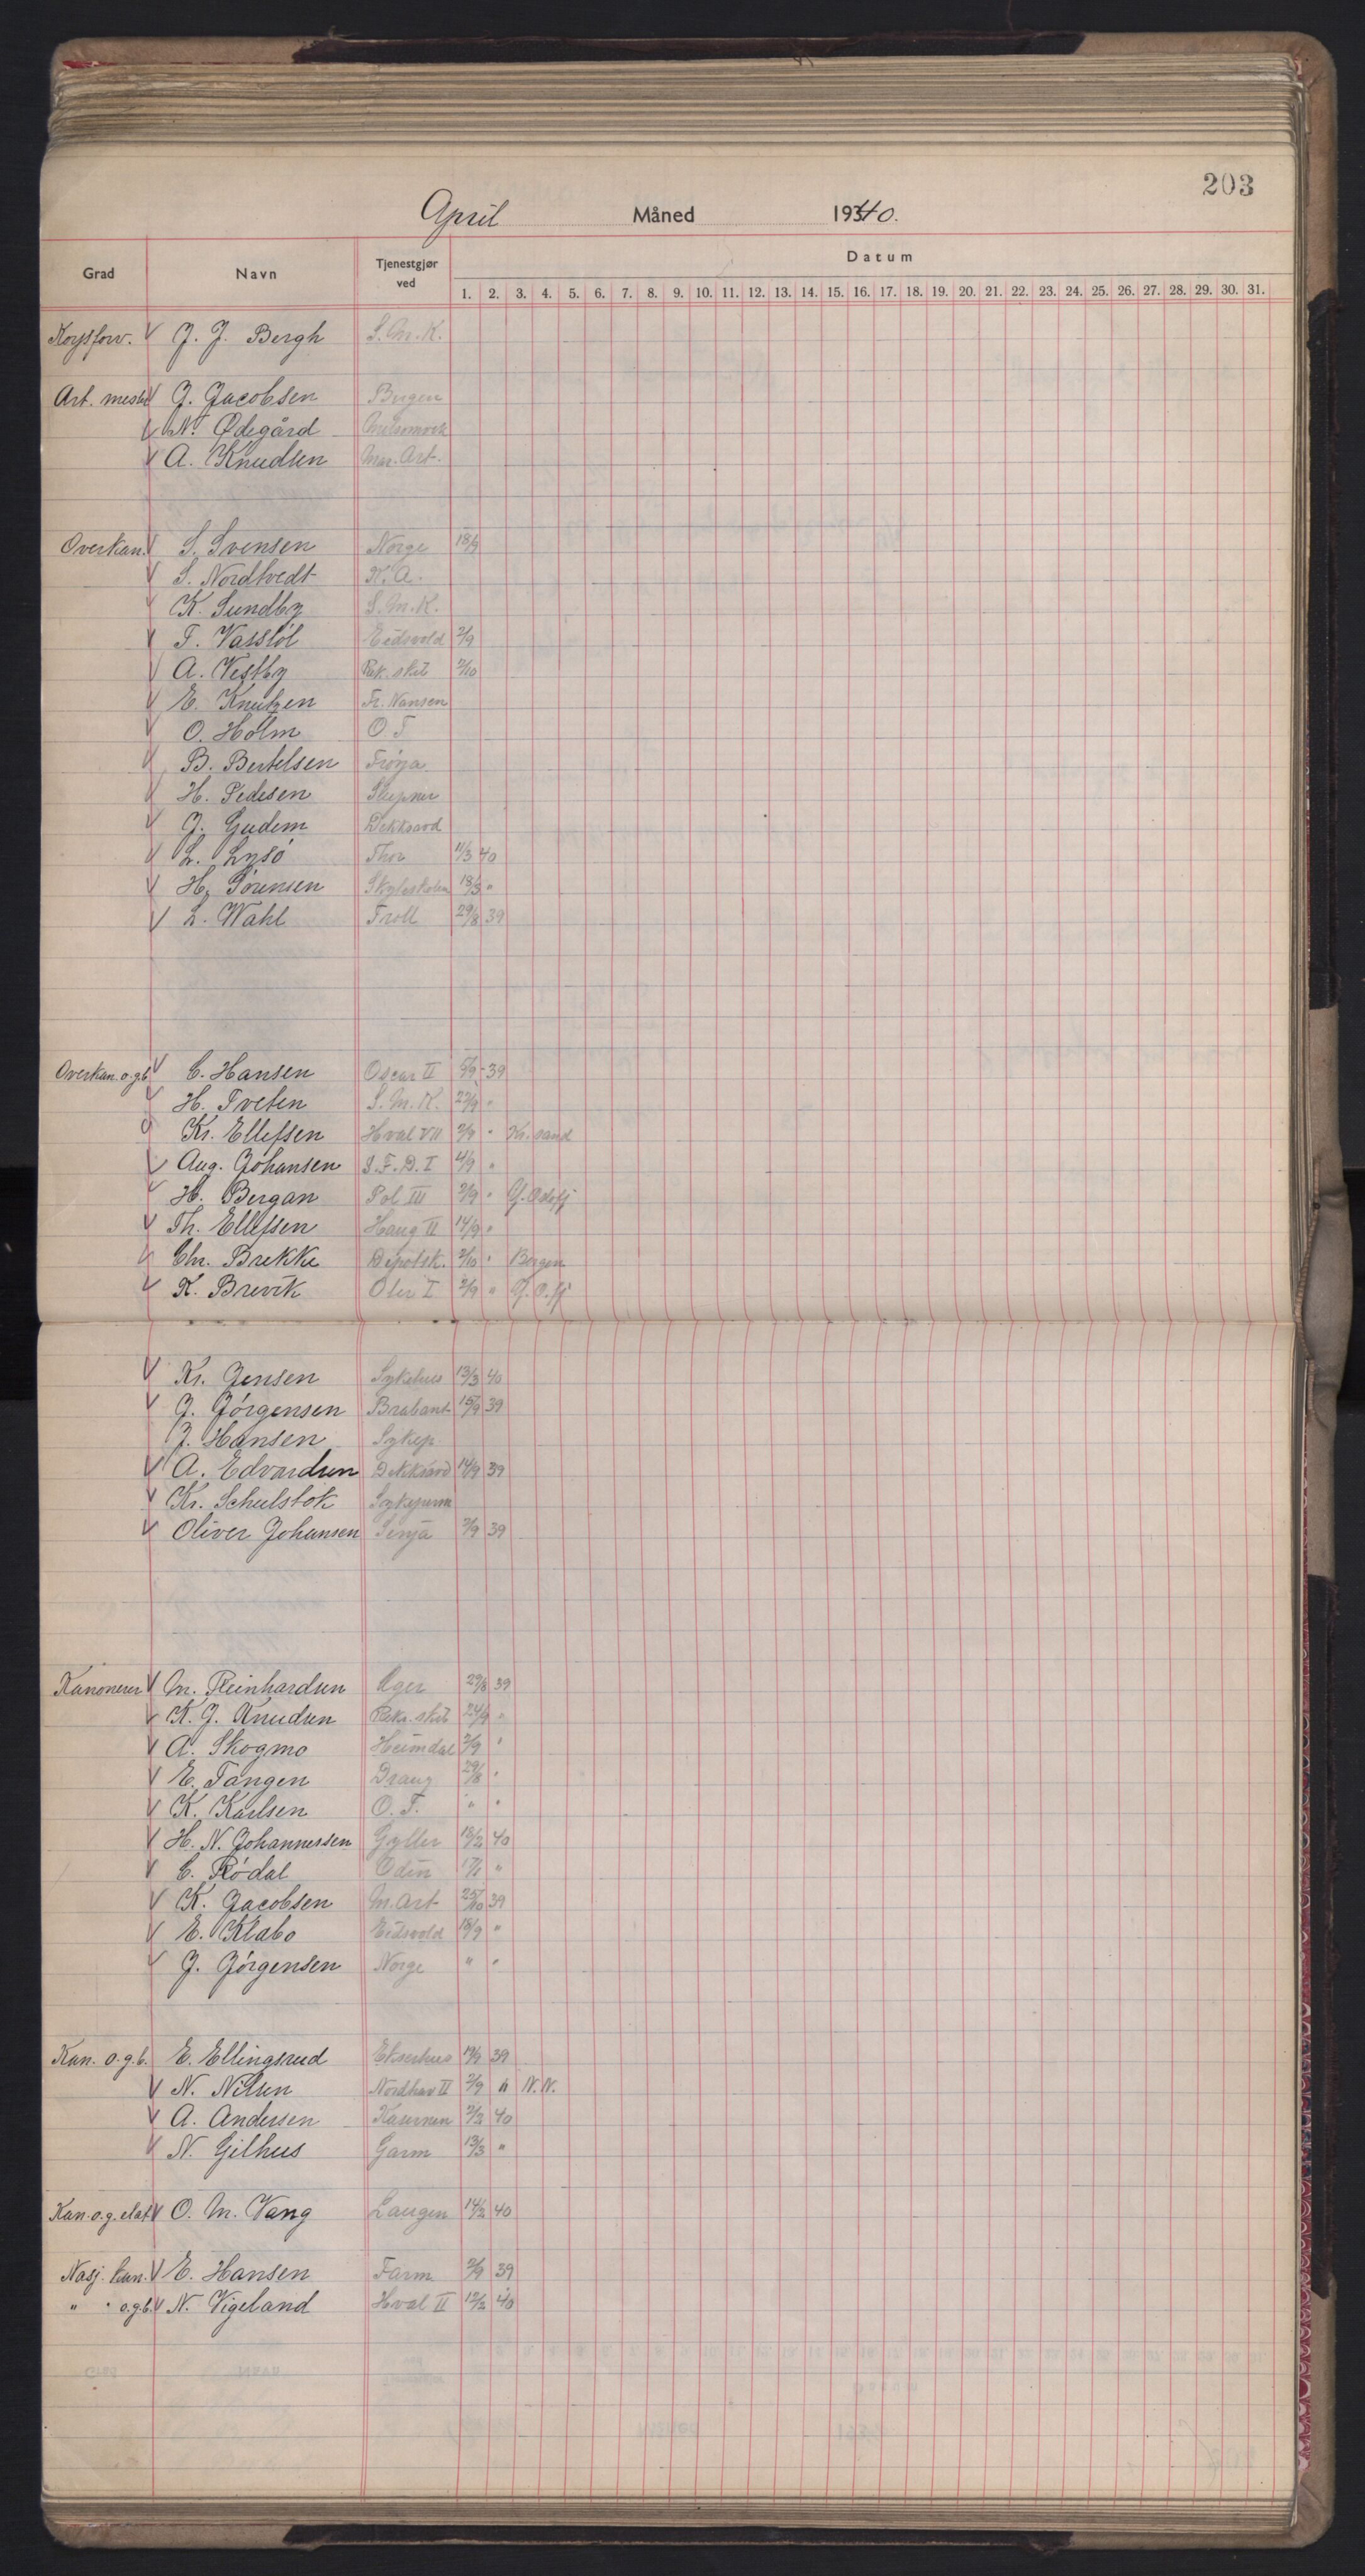 203
April Måned 19340.
Grad Navn Tjenestgjør ved Datum
1. 2. 3. 4. 5. 6. 7. 8. 9. 10. 11. 12. 13. 14. 15. 16. 17. 18. 19. 20. 21. 22. 23. 24. 25. 26. 27. 28. 29. 30. 31.
J. J. Bergh S. M. K.
Art. mester J. Jacobsen Bergen
N. Ødegård
A. Knudsen Mar. Art.
Overkan. S. Svensen Norge 18/9
S. Nordtvedt K. A.
K. Sundby S. M. K.
T. Vasstöl Eidsvold 2/9
A. Vestby Rek. skut 2/10
E. Knutzen Fr. Nansen
O. Holm O T
B. Bertelsen Fröya
H. Pedesen Sleipner
J. Gudem Dekksavd
L. Lysö Thor 11/3 40
H. Sörensen 18/3 "
L. Wahl Troll 29/8 39
Overkan. o.g.b. C. Hansen Oscar II 5/9 - 39
H. Tveten S. M. K. 22/9 "
Kr. Ellefsen Hval VII 2/9 " Kr. sand
Aug. Johansen S. F. D. I 4/9 "
H. Bergan Pol III 2/9 " Y. Oslofj
Th. Ellefsen Haug II 14/9 "
Chr. Brekke Depotsk. 2/10 " Bergen
K. Brevik Oter I 2/9 " Y. O. fj
Kr. Jensen Sykehus 13/3 40
J. Jörgensen Brabant 15/9 39
J. Hansen Sykep
A. Edvardsen Dekksavd 14/9 39
Kr. Schulstok
Oliver Johansen Senja 2/9 39
Kanonerer M. Reinhardsen Æger 29/8 39
K. J. Knudsen Rekr. skut 24/9 "
A. Skogmo Heimdal 2/9 "
E. Tangen Draug 29/8 "
K. Karlsen O. T. " "
H. N. Johannessen Gyller 18/2 40
C. Rödal Odin 17/1 "
K. Jacobsen M. Art 25/10 39
E. Klabo Eidsvold 18/9 "
J. Jörgensen Norge " "
Kan. o.g.b. E. Ellingsrud Ekserhus 19/9 39
N. Nilsen Nordhav II 2/9 " N. N.
A. Andersen Kasernen 2/2 40
N. Gilhus Garm 13/3 "
Kan. o.g. elat O. M. Vang Laugen 14/2 40
Nasj. kan. E. Hansen Farm 2/9 39
" " o.g.b. N. Vigeland Hval II 12/2 40